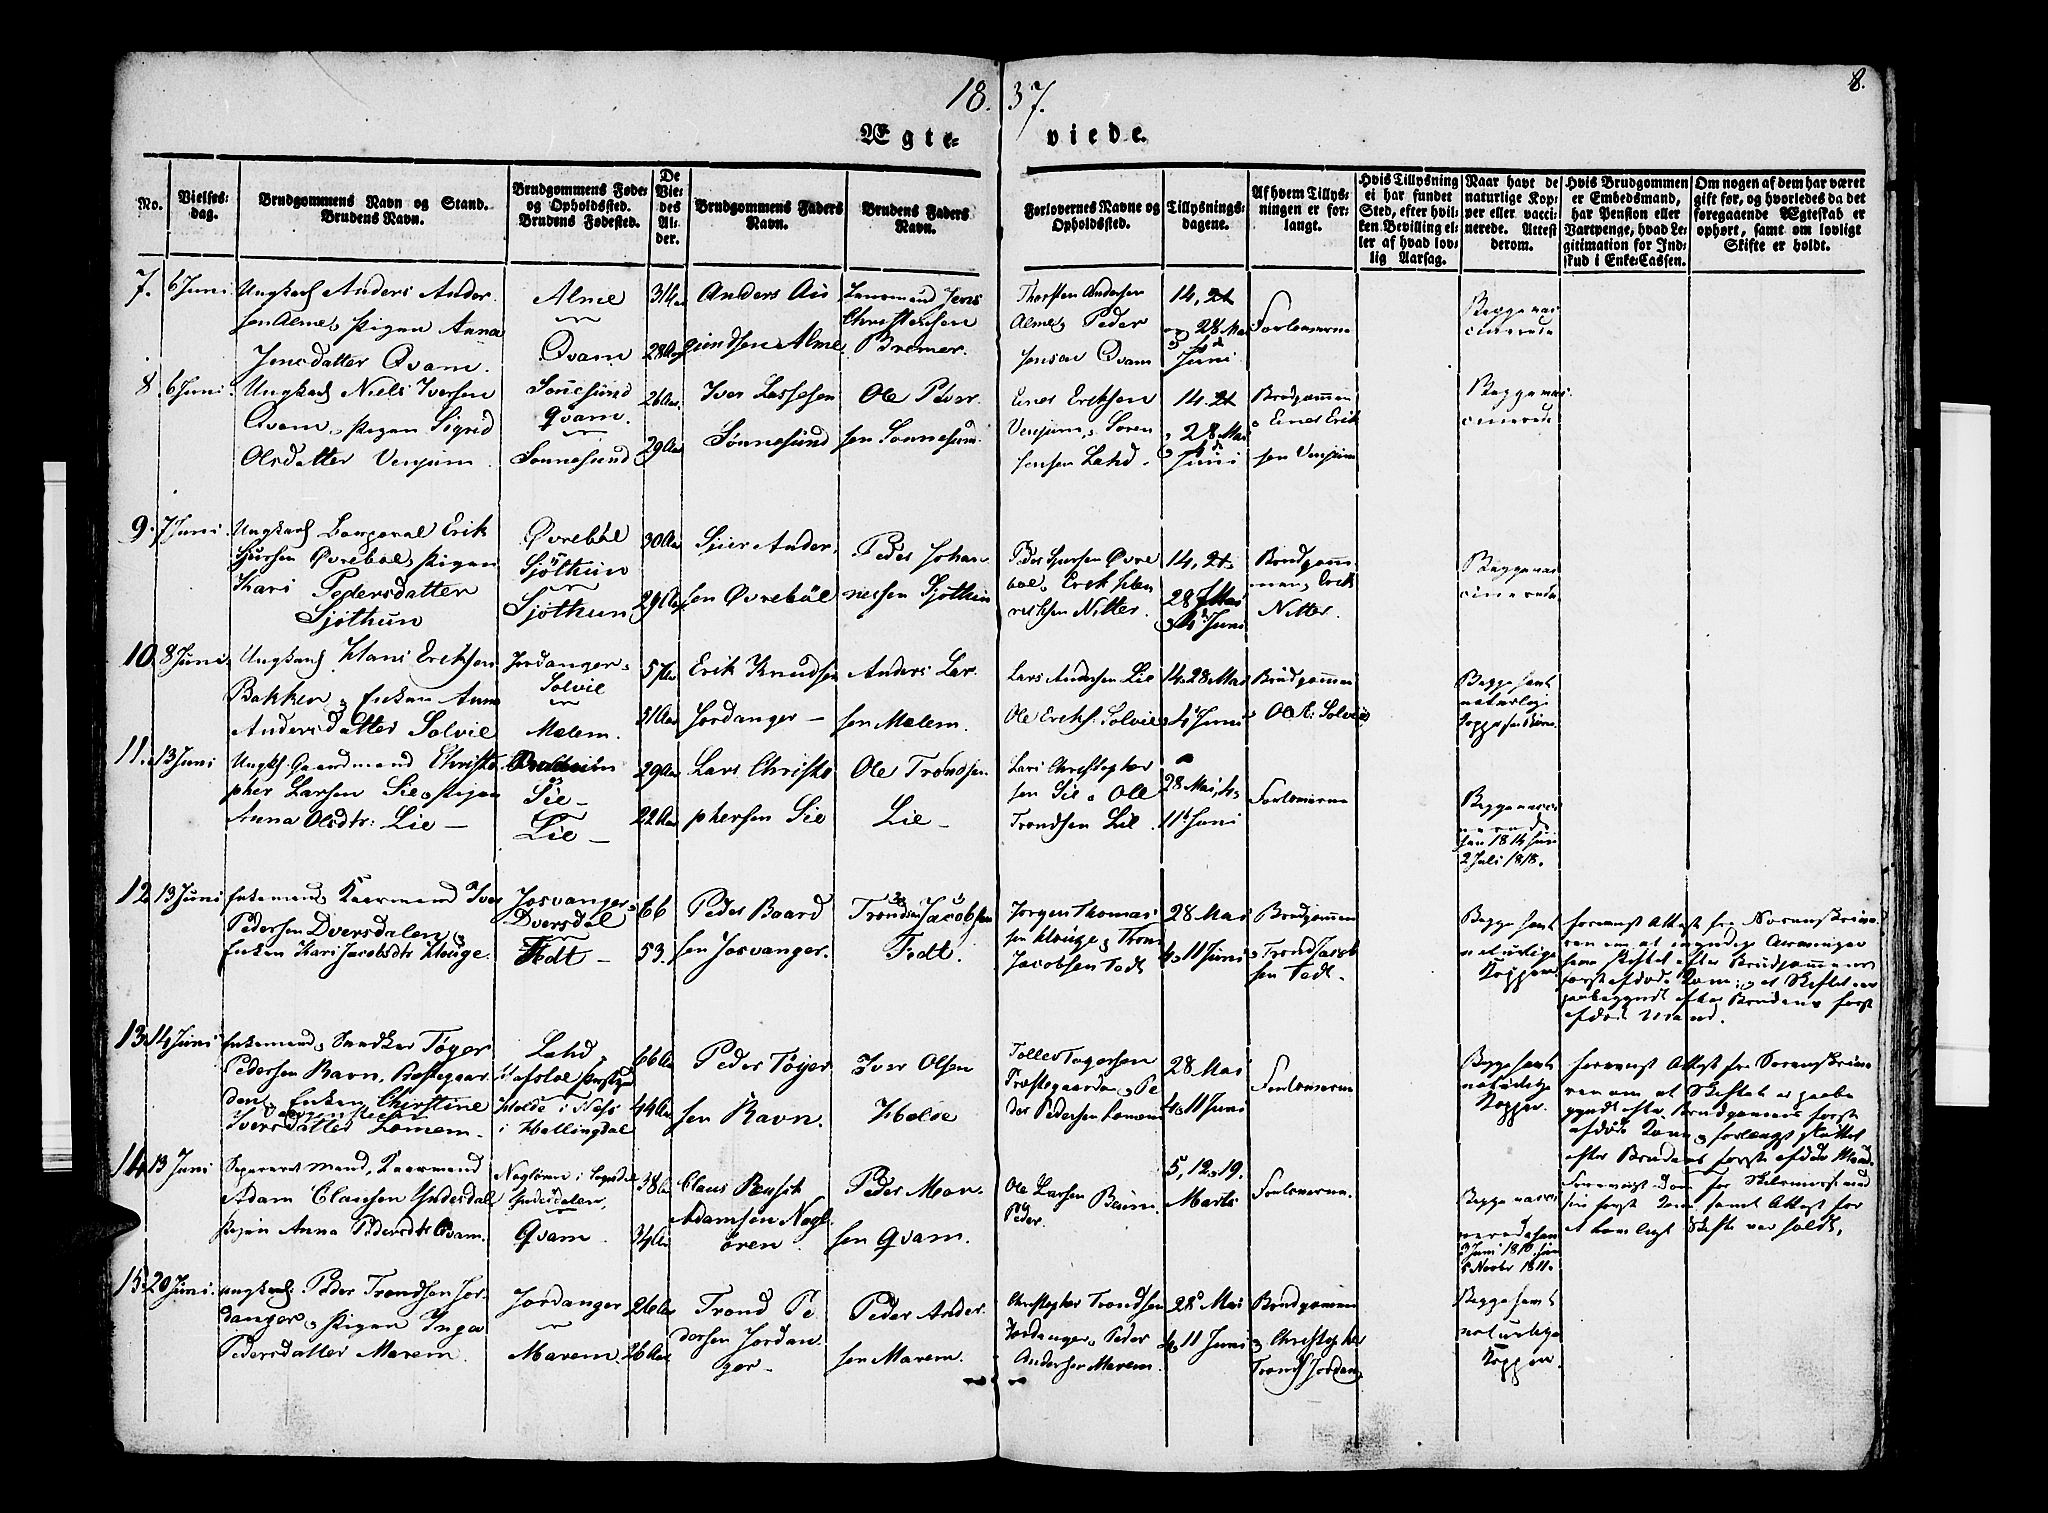 18. 37.
8.
Ægte- viede.
No.
Vielses-
dag.
Brudgommens Navn og Stand.
Brudens Navn.
Brudgommens Føde-
og Opholdssted.
Brudens Fødested.
De
Vie-
des
Al-
der.
Brudgommens Faders
Navn.
Brudens Faders
Navn.
Forlovernes Navne og
Opholdssted.
Tillysnings-
dagene.
Af hvem Tillys-
ningen er for-
langt.
Hvis Tillysning
ei har fundet
Sted, efter hvil-
ken Bevilling el-
ler af hvad lov-
lig Aarsag.
Naar havt de
naturlige Kop-
per eller vacci-
nerede. Attest
derom.
Hvis Brudgommen
er Embedsmand,
har Pension eller
Vartpenge, hvad Le-
gitimation for Ind-
skud i Enke-Cassen.
Om nogen af dem har været
gift før, og hvorledes da det
foregaaende Ægteskab er
ophørt, samt om lovligt
Skifte er holdt.
7. 6 Juni
Ungkarl Anders Ander-
sen Alme, Pigen Anna
Jensdatter Qvam.
Alme
Qvam
34
28 Aar
Anders Au
gundsen Alme
Lensmand Jens
Christensen
Bremer.
Thorsten Andersen
Alme, Peder
Jensen Qvam
14, 21
og 28 Mai
Juni
Forloverne
Begge vac
cinerede
8. 6 Juni
Ungkarl Niels Iversen
Qvam, Pigen Sigrid
Olsdatter Venjum.
Sønnesund
Qvam.
Sønnesund
26 Aar
29 Aar
Iver Lassesen
Sønnesund
Ole Peder-
sen Sønnesund
Einer Eriksen
Venjum, Søren
Jensen Lahd.
14. 21
28 Mai
Juni
Brudgommen
Einer Erik
sen Venjum
Begge vac
cinerede
9. 7 Juni
Ungkarl Erik
Sjursen Øvrebøe, Pigen
Kari Pedersdatter
Sjøthun
Øvrebøe
Sjøthun
Sjøthun
30 Aar
29 Aar
Sjur Ander-
sen Øvrebøe
Peder Johan
nessen Sjøthun
Peder Sjursen Øvre
bøe, Erik Hen
richsen Nitter.
14, 21
28 Mai
4 Juni
Brudgom
men, Erik
Nitter.
Begge vac
cinerede
10. 8 Juni
Ungkarl Hans Eriksen
Bakken, Enken Anna
Andersdatter Solvie
Jordanger
Solvie
Melem.
57 Aar
51 Aar
Erik Knudsen
Jordanger
Anders Lar-
sen Melem.
Lars Andersen Lie
Ole Eriks. Solvie
14, 28 Mai
4 Juni
Brudgommen
Ole E. Solvie
Begge havt
naturlige
11. 13 Juni
Ungk. Gaardmand Christo
pher Larsen Sie, Pigen
Anna Olsdtr: Lie
Sie
Lie
29 Aar
22 Aar
Lars Christo
phersen Sie
Ole Trondsen
Lie
Lars Christopher
sen Sie, Ole
Trondsen Lie
28 Mai, 4,
11 Juni
Forloverne
Begge vacci
nerede
2 Juli 1818.
12. 13 Juni
Enkemand, Kaarmand Iver
Pedersen Dversdalen,
Enken Kari Jacobsdtr Kloüge.
Josvanger
Dversdal
Fedt
66
53.
Peder Baard
sen Josvanger.
Trond Jacobsen
Fedt.
Jørgen Thomas
sen Klouge, Tron
Jacobsen Fedt
28 Mai
4, 11 Juni
Brudgommen
Trond Jacob
sen Fedt.
Begge havt
naturlige
Kopper
første afdøde Kone, at Skiftet er
paabegyndt efter Brudens først
afdøde Mand.
13. 14 Juni
Enkemand, Snedker Tøger
Pedersen Ravn, Præstegaar
den, Enken Christine
Iversdatter Lomem.
Lahd,
Hafsloe Præstgd
Holde i Næss
i Hallingdal
66 Aar
44 Aar
Peder Tøger
sen Ravn.
Iver Olsen
Holde
Tollev Tøgersen
Præstegaarden, Pe
der Pedersen Lomem
28 Mai
4, 11 Juni
Forloverne
Begge havt
naturlige
Kopper.
ren om at Skiftet er paabe
gyndt efter Brudgommens først
afdøde Kone, forlængst sluttet
efter Brudens første afdøde Mand.
14. 13 Juni
Separeret Mand, Kaarmand
Adam Clausen Yndesdal
Pigen Anna Pedersdtr Qvam.
Nagløren i Sogndal
Yndesdalen
Qvam.
38 Aar
34 Aar
Claus Bensik
Adamsen Nagl
ören
Peder Mon-
sen Qvam.
Ole Larsen Bain
Peder.
5, 12, 19.
Marts
Forloverne.
Begge vacci
nerede
3 Juni 1810
5 Novbr 1811.
sin første Kone samt Attest for
at lovligt Skifte var holdt.
15. 20 Juni.
Ungkarl Peder Trondsen Jor-
danger, Pigen Inga
Pedersdatter Marem.
Jordanger
Marem
26 Aar
26 Aar
Trond Pe
dersen Jordan
ger
Peder Ander
sen Marem.
Christopher Trondsen
Jordanger, Peder
Andersen Marem.
28 Mai
4, 11 Juni
Brudgommen
Christopher
Tronds Jordan.
Begge havt
naturlige
Kopper.